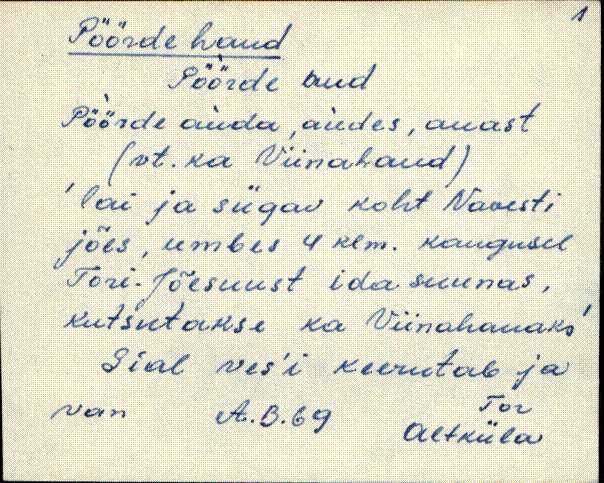 1
Pöörde haud
Pöörde aud
Pöörde auda, audes, auast
(vt. ka Viinahaud)
'lai ja sügav koht Navesti
jões, umbes 4 klm. kaugusel
Tori-Jõesuust ida suunas,
kutsutakse ka Viinahauaks'
Sial ves'i keerutab ja
van A.B.69 Tor
Altküla